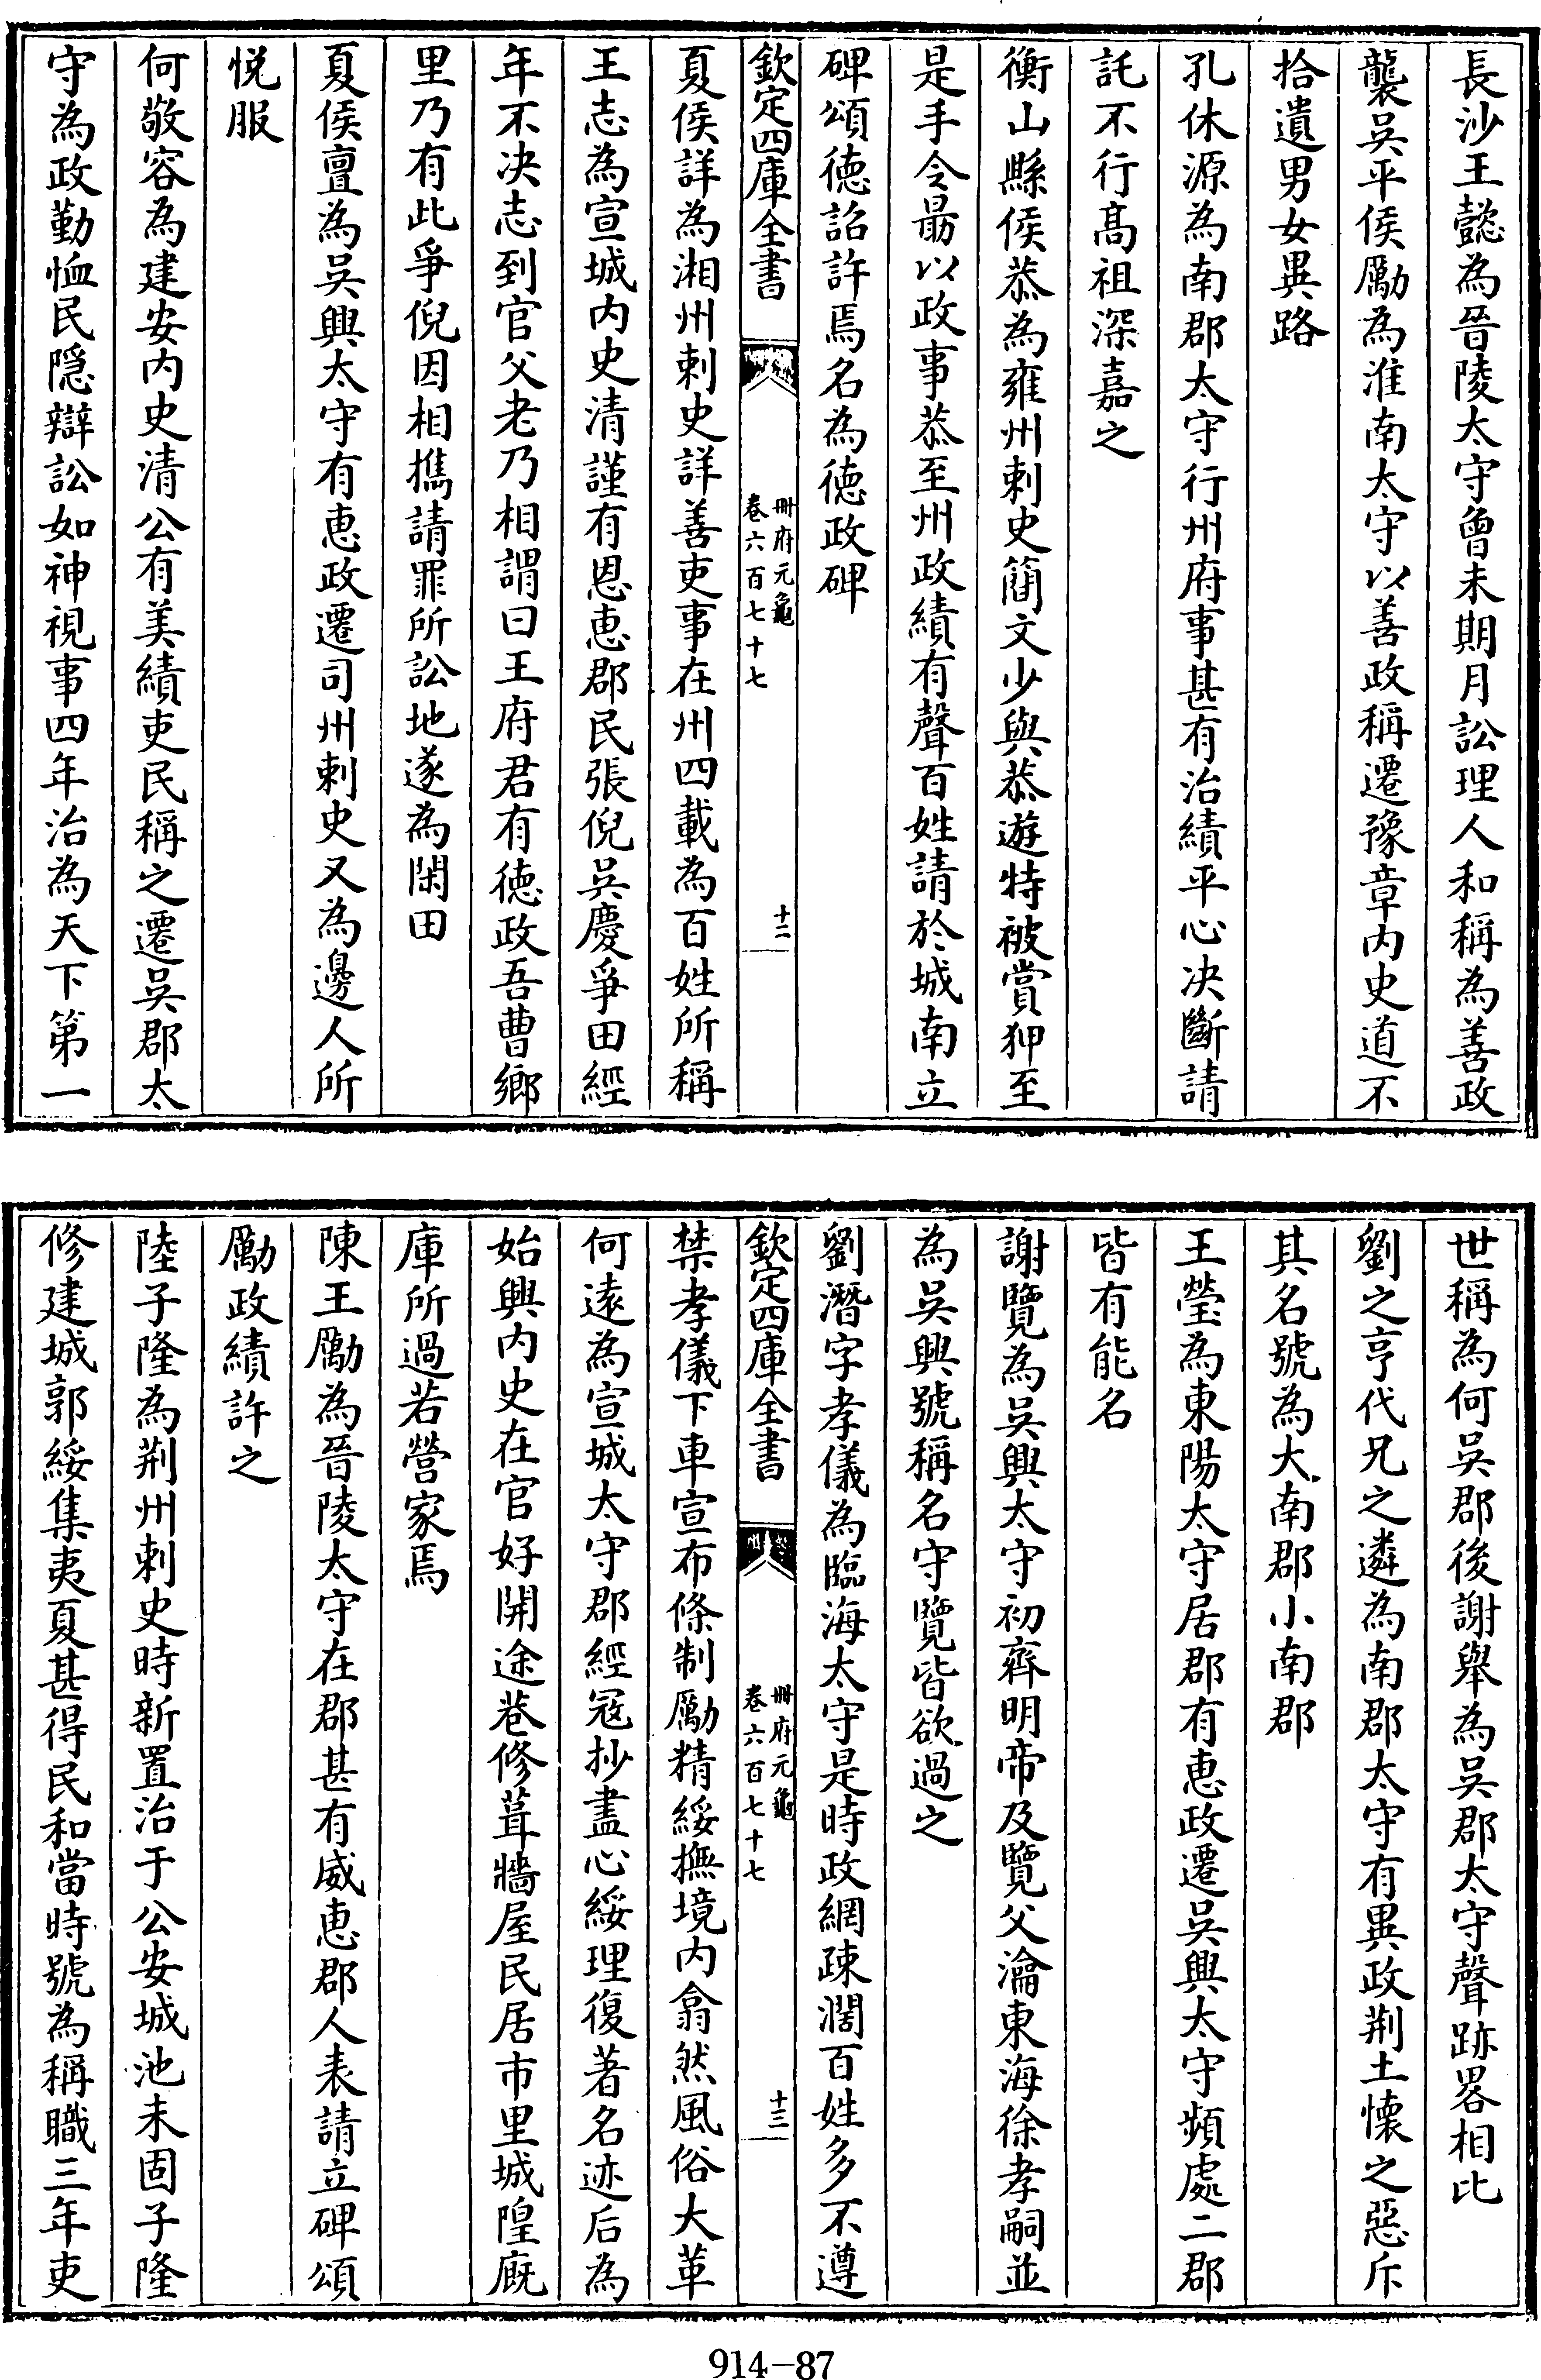 長沙王懿為晉陵太守曾未期月訟理人和稱為善政
襲吳平侯勵為淮南太守以善政稱遷豫章内史道不
拾遺男女異路
孔休源為南郡太守行州府事甚有治績平心决斷請
託不行髙祖深嘉之
衡山縣侯恭為雍州刺史簡文少與恭遊特被賞狎至
是手令勗以政事恭至州政績有聲百姓請於城南立
碑頌徳詔許焉名為徳政碑
欽定四庫全書
冊府元龜
卷六百七十七
十二
夏侯詳為湘州刺史詳善吏事在州四載為百姓所稱
王志為宣城内史清謹有恩恵郡民張倪吳慶爭田經
年不决志到官父老乃相謂曰王府君有徳政吾曹鄉
里乃有此爭倪因相攜請罪所訟地遂為閑田
夏侯亶為吳興太守有恵政遷司州刺史又為邊人所
悦服
何敬容為建安内史清公有美績吏民稱之遷吳郡太
守為政勤恤民隱辯訟如神視事四年治為天下第一
世稱為何吳郡後謝舉為吳郡太守聲跡畧相比
劉之亨代兄之遴為南郡太守有異政荆土懐之惡斥
其名號為大南郡小南郡
王瑩為東陽太守居郡有恵政遷吳興太守頻處二郡
皆有能名
謝覽為吳興太守初齊明帝及覽父瀹東海徐孝嗣並
為吳興號稱名守覽皆欲過之
劉潛字孝儀為臨海太守是時政網疎濶百姓多不遵
欽定四庫全書
冊府元龜
卷六百七十七
十三
禁孝儀下車宣布條制勵精綏撫境内翕然風俗大革
何逺為宣城太守郡經冦抄盡心綏理復著名迹后為
始興内史在官好開途巷修葺牆屋民居市里城隍廐
庫所過若營家焉
陳王勵為晉陵太守在郡甚有威恵郡人表請立碑頌
勵政績許之
陸子隆為荆州刺史時新置治于公安城池未固子隆
修建城郭綏集夷夏甚得民和當時號為稱職三年吏
914-87